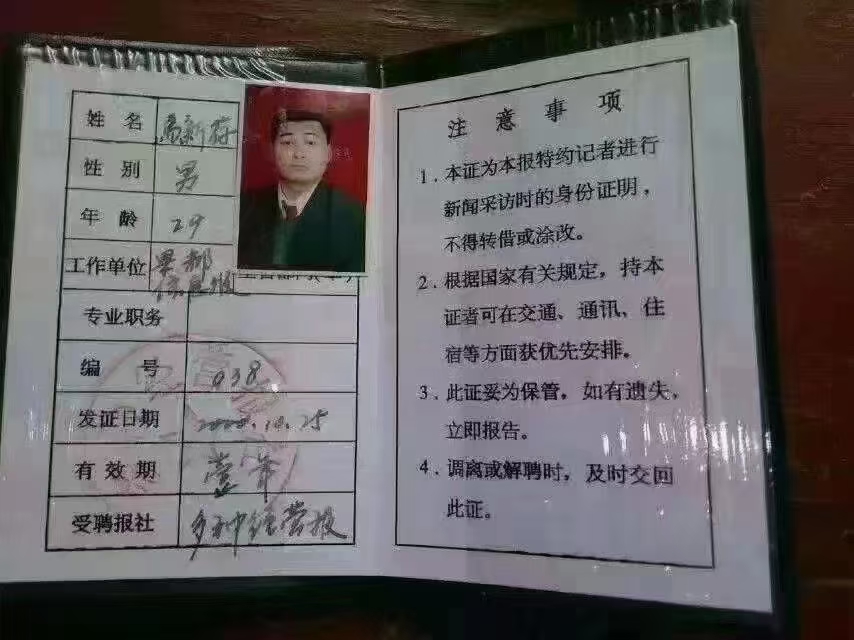 姓 名 高新荷
性 别 男
年 龄 29
工作单位 梁都
信息报
专业职务
编 号 038
发证日期 2000.10.25
有 效 期 壹年
受聘报社 多种经营报
注 意 事 项
1．本证为本报特约记者进行
新闻采访时的身份证明，
不得转借或涂改。
2．根据国家有关规定，持本
证者可在交通、通讯、住
宿等方面获优先安排。
3．此证妥为保管，如有遗失，
立即报告。
4．调离或解聘时，及时交回
此证。